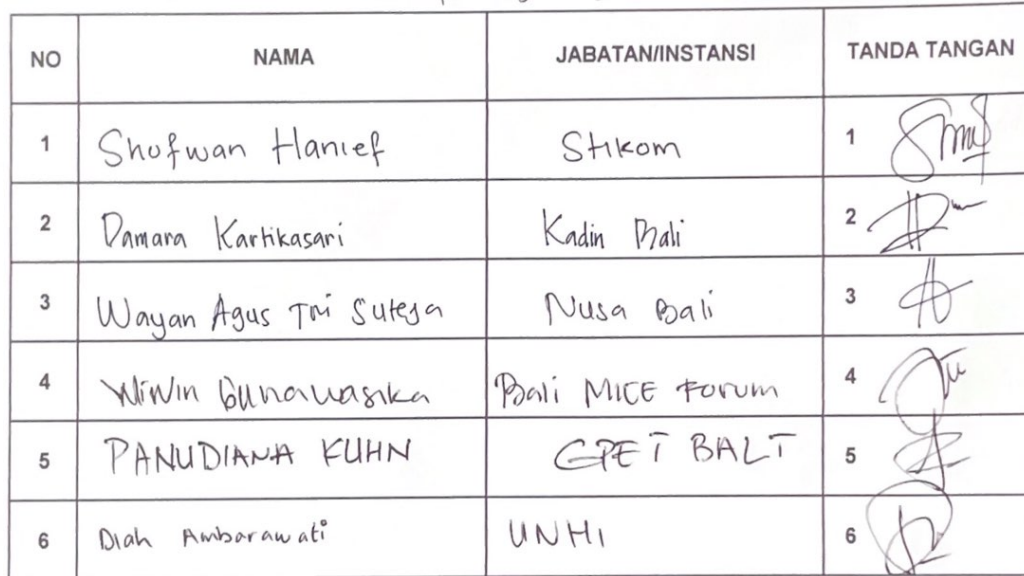 NO NAMA JABATAN/INSTANSI TANDA TANGAN
1 Shofwan Hanief Stikom 1
2 Damara Kartikasari Kadin Bali 2
3 Wayan Agus Tri Suteja Nusa Bali 3
4 WiWin Gunawasika Bali MICE Forum 4
5 PANUDIANA KUHN GPEI BALI 5
6 Diah Ambarawati UNHI 6